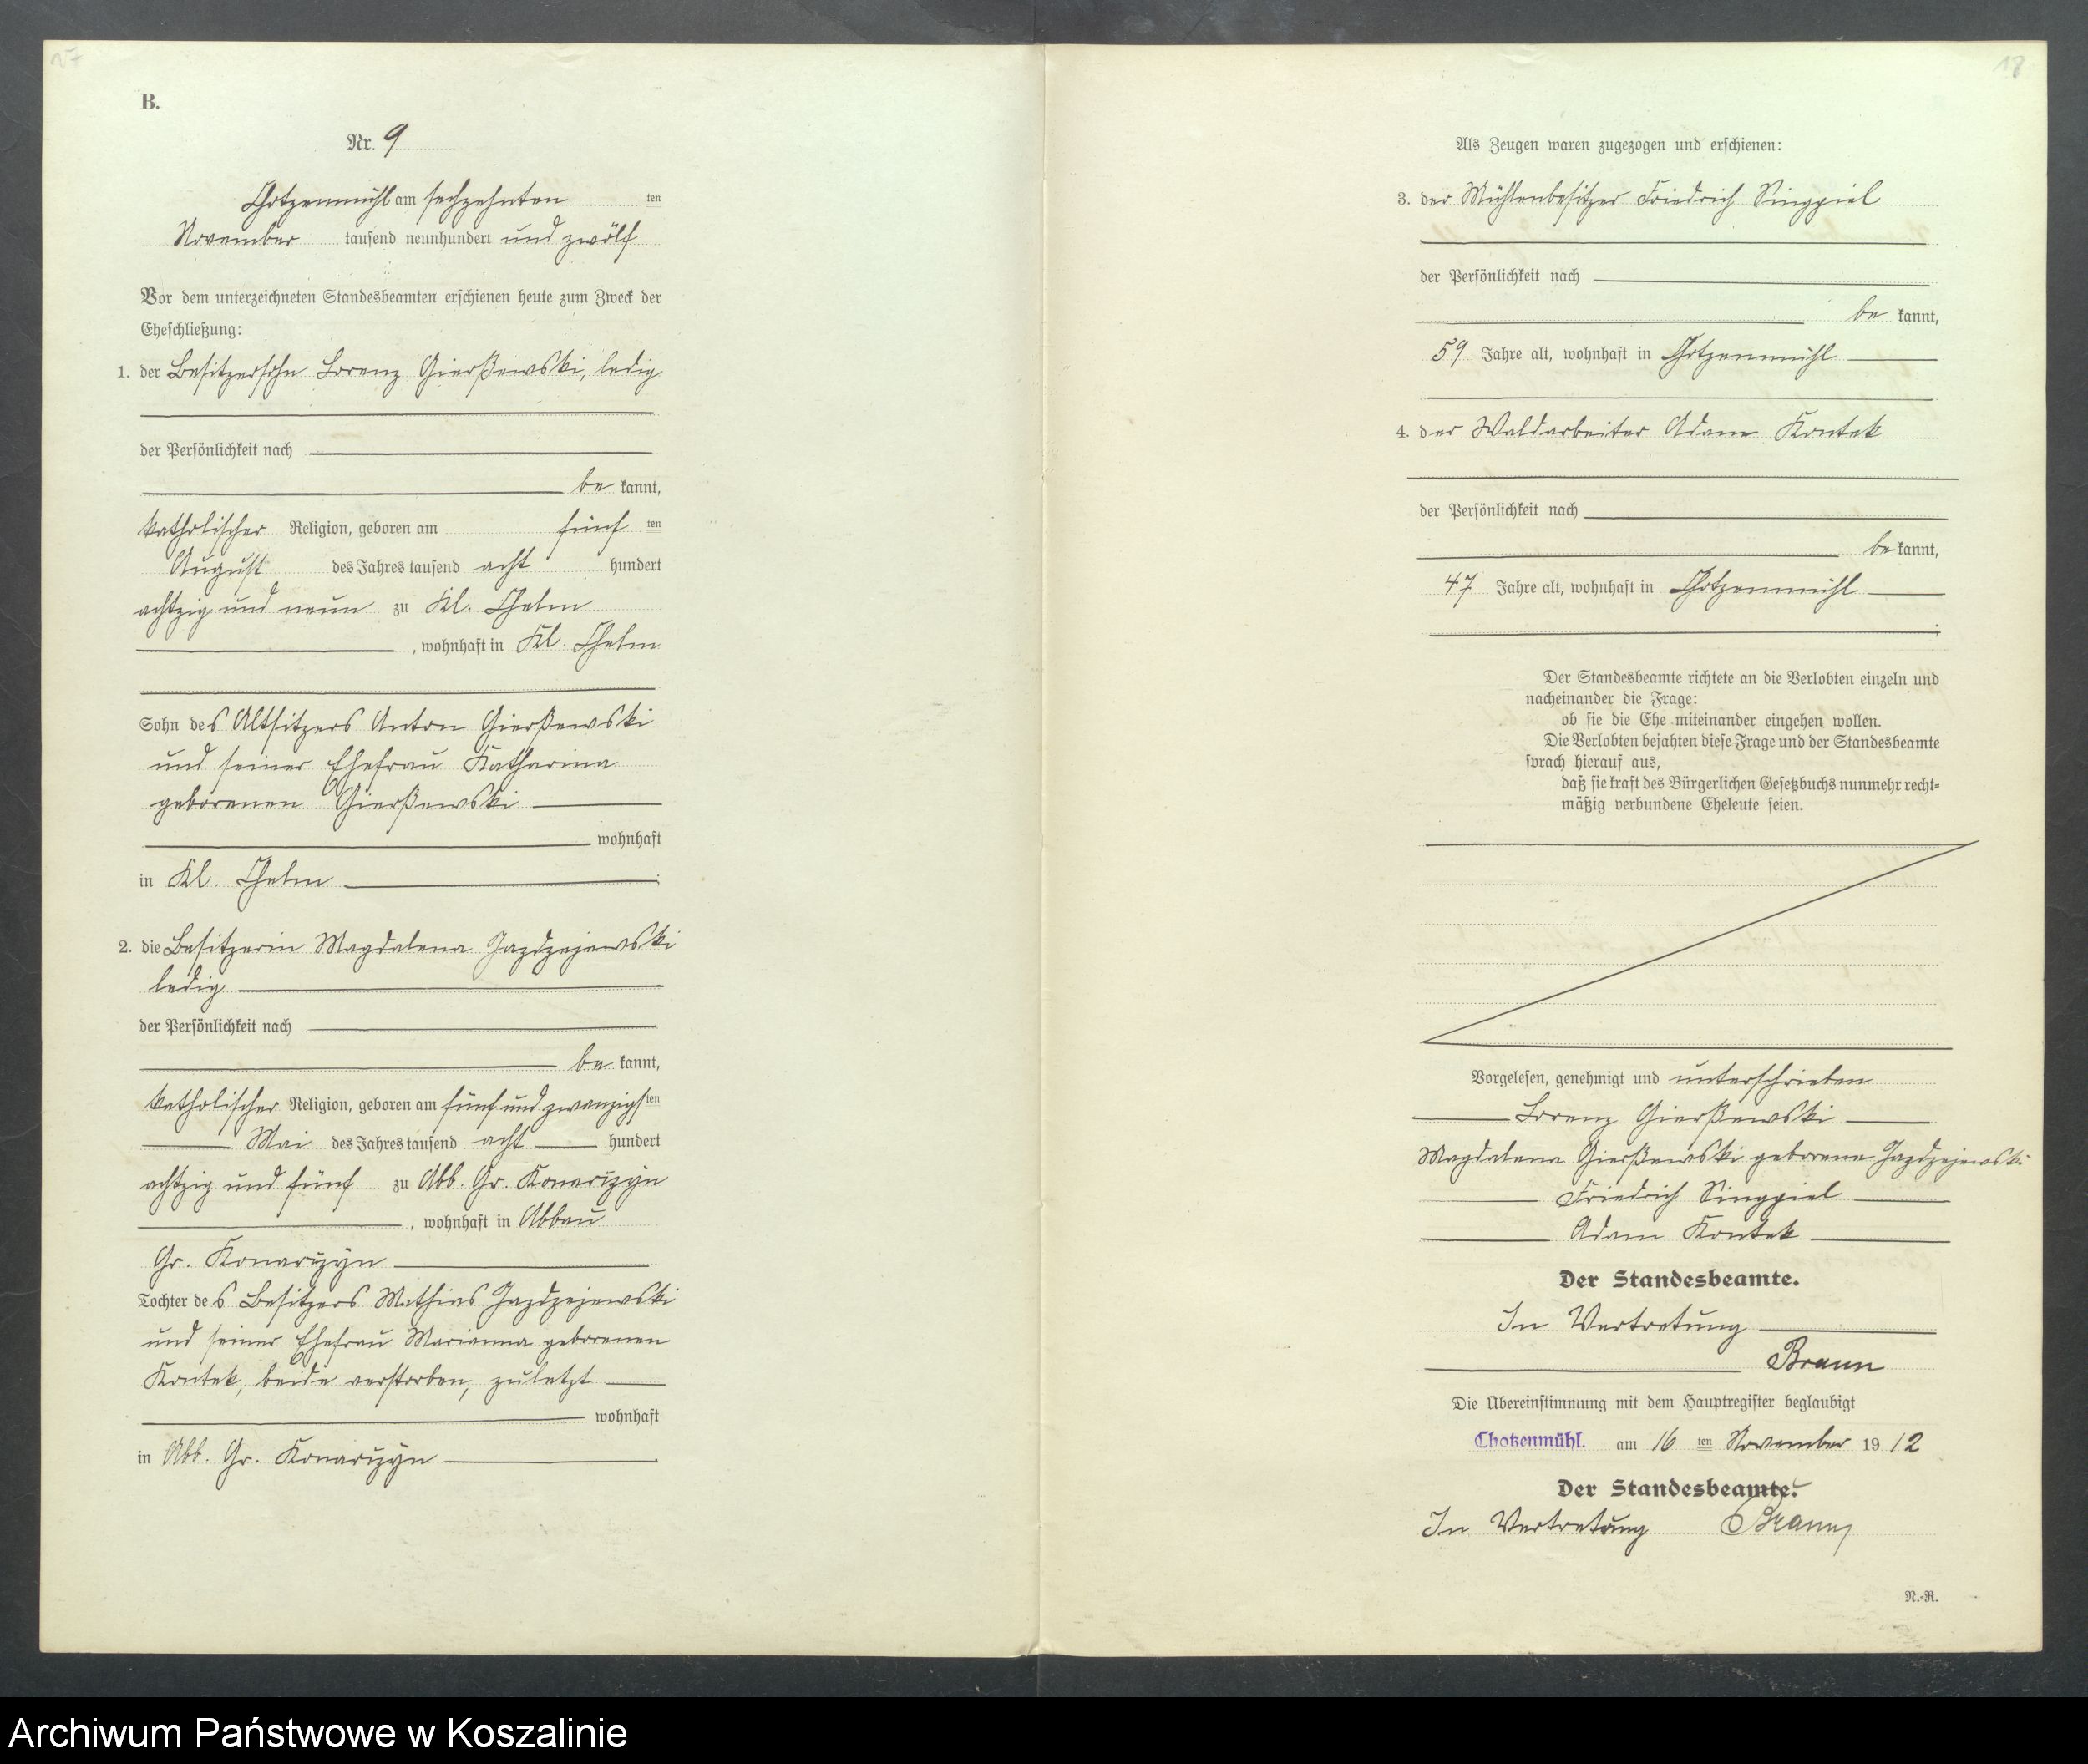 B.
Nr. 9
Chotzenmühl am sechzehnten ten
November tausend neunhundert und zwölf
Vor dem unterzeichneten Standesbeamten erschienen heute zum Zweck der
Eheschließung:
1. der Besitzersohn Lorenz Gierßewski, ledig
der Persönlichkeit nach
be kannt,
katholischer Religion, geboren am fünf ten
August des Jahres tausend acht hundert
achtzig und neun zu Kl. Chelm
, wohnhaft in Kl. Chelm
Sohn des Altsitzers Anton Gierßewski
und seiner Ehefrau Katharina
geborenen Gierßewski
wohnhaft
in Kl. Chelm ;
2. die Besitzerin Magdalena Jazdzejewski
ledig
der Persönlichkeit nach
be kannt,
katholischer Religion, geboren am fünf und zwanzigsten
Mai des Jahres tausend acht hundert
achtzig und fünf zu Abb. Gr. Konarczyn
, wohnhaft in Abbau
Gr. Konarczyn
Tochter des Besitzers Mathias Jazdzejewski
und seiner Ehefrau Marianna geborenen
Kontek, beide verstorben, zuletzt
wohnhaft
in Abb. Gr. Konarczyn .
18
Als Zeugen waren zugezogen und erschienen:
3. der Mühlenbesitzer Friedrich Singpiel
der Persönlichkeit nach
be kannt,
59 Jahre alt, wohnhaft in Chotzenmühl
4. der Waldarbeiter Adam Kontek
der Persönlichkeit nach
be kannt,
47 Jahre alt, wohnhaft in Chotzenmühl
;
Der Standesbeamte richtete an die Verlobten einzeln und
nacheinander die Frage:
ob sie die Ehe miteinander eingehen wollen.
Die Verlobten bejahten diese Frage und der Standesbeamte
sprach hierauf aus,
daß sie kraft des Bürgerlichen Gesetzbuchs nunmehr recht-
mäßig verbundene Eheleute seien.
Vorgelesen, genehmigt und unterschrieben
Lorenz Gierßewski
Magdalena Gierßewski geborene Jazdzejewski
Friedrich Singpiel
Adam Kontek
Der Standesbeamte.
In Vertretung
Braun
Die Übereinstimmung mit dem Hauptregister beglaubigt
Chotzenmühl. am 16 ten November 1912
Der Standesbeamte.
In Vertretung Braun
N.-R.
Archiwum Państwowe w Koszalinie